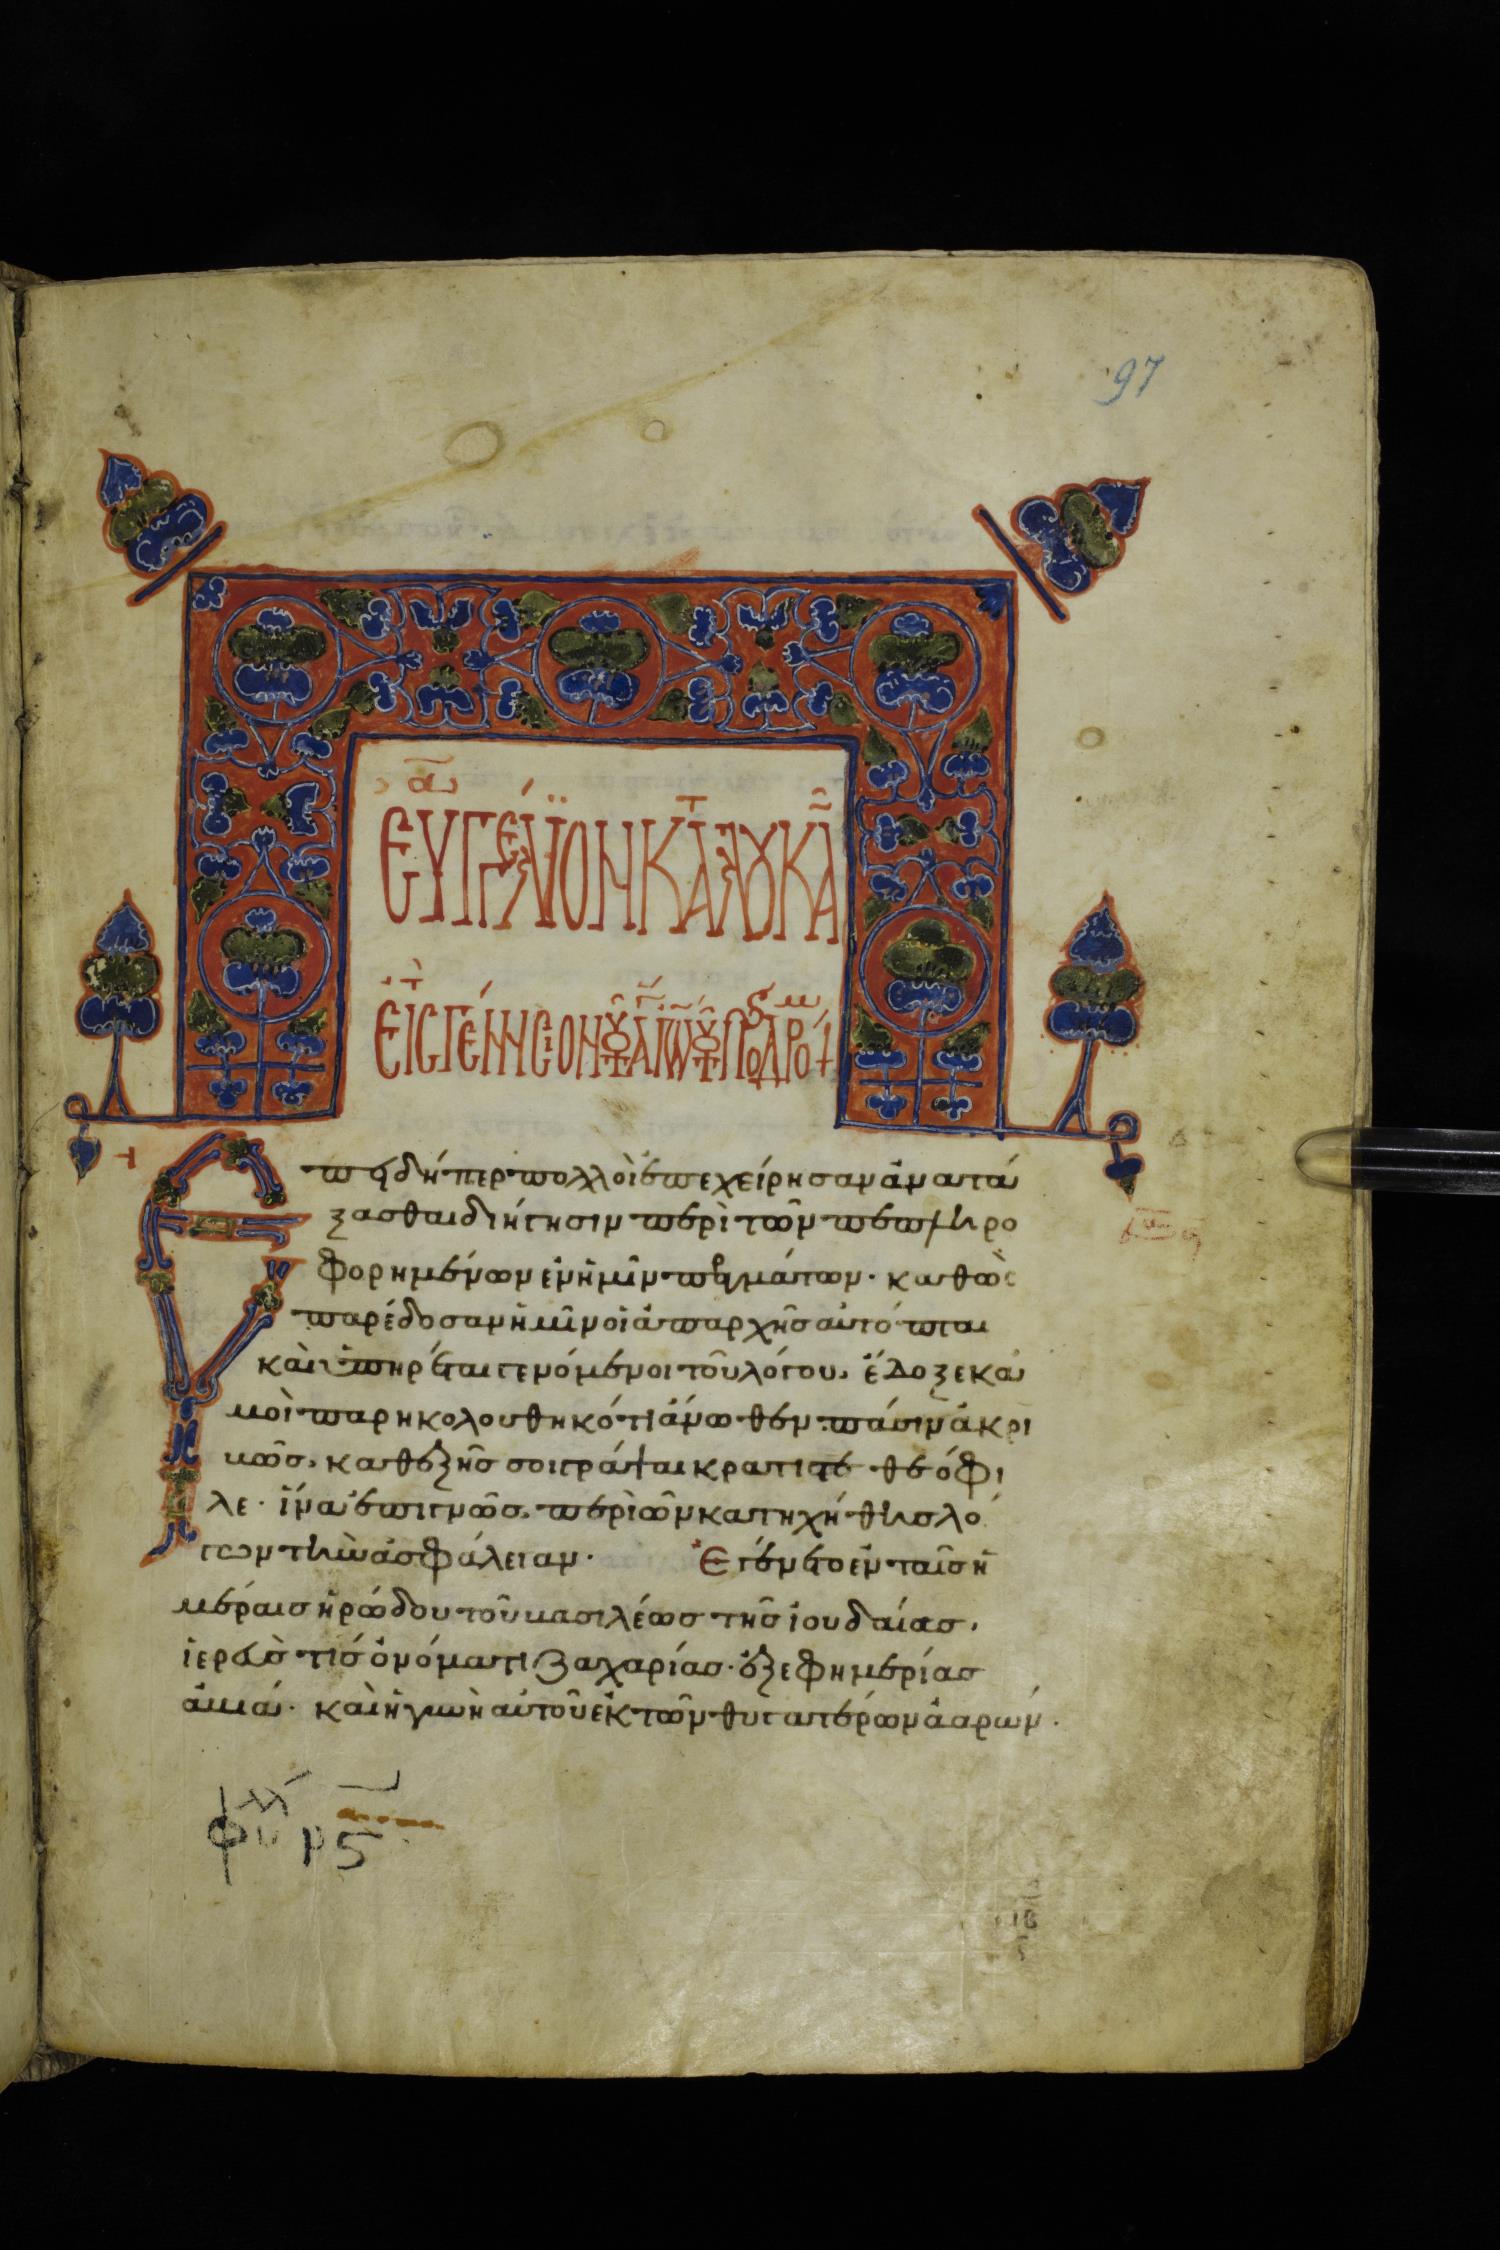 97
ΕΥΑΓΓΈΛΙΟΝ ΚΑΤᾺ ΛΟΥΚΑ͂
Ἐπειδήπερ πολλοὶ ἐπεχείρησαν ἀνατά
ξασθαι διήγησιν περὶ τῶν πεπληρο
φορημένων ἐν ἡμῖν πραγμάτων· καθὼς
παρέδοσαν ἡμῖν οἱ ἀπαρχῆς αὐτόπται
καὶ ὑπηρέται γενόμενοι τοῦ λόγου, ἔδοξε κα
μοὶ παρηκολουθηκότι ἄνωθεν πάσιν ἀκρι
βῶς, καθεξῆς σοι γράψαι κράτιστε θεόφι
λε· ἵνα ἐπιγνῶς, περὶ ὧν κατηχήθης λό
γων τὴν ἀσφάλειαν· Ἐγένετο ἐν ταῖς ἡ
μέραις ἡρώδου τοῦ βασιλέως τῆς ἰουδαίας,
ἱερεὺς τίς ὀνόματι Ζαχαρίας· ἐξ ἐφημερίας
ἀβιά· καὶ ἡ γυνὴ αὐτοῦ ἐκ τῶν θυγατέρων ἀαρών·